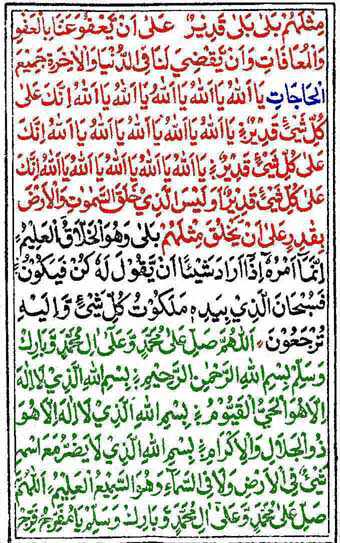 مِثْلَهُمْ بَلٰى بَلٰى قَدِيْرٌ عَلٰى اَنْ يَّعْفُوَ عَنَّا بِالْعَفْوِ
وَالْمُعَافَاتِ وَاَنْ يَّقْضِيَ لَنَا فِي الدُّنْيَا وَالْاٰخِرَةِ جَمِيْعَ
الْحَاجَاتِ يَا اَللهُ يَا اَللهُ يَا اَللهُ يَا اَللهُ يَا اَللهُ اِنَّكَ عَلٰى
كُلِّ شَيْءٍ قَدِيْرٌ يَا اَللهُ يَا اَللهُ يَا اَللهُ يَا اَللهُ يَا اَللهُ اِنَّكَ
عَلٰى كُلِّ شَيْءٍ قَدِيْرٌ يَا اَللهُ يَا اَللهُ يَا اَللهُ يَا اَللهُ يَا اَللهُ اِنَّكَ
عَلٰى كُلِّ شَيْءٍ قَدِيْرٌ اَوَلَيْسَ الَّذِيْ خَلَقَ السَّمٰوٰتِ وَالْاَرْضَ
بِقٰدِرٍ عَلٰى اَنْ يَّخْلُقَ مِثْلَهُمْ بَلٰى وَهُوَ الْخَلَّاقُ الْعَلِيْمُ
اِنَّمَا اَمْرُهٗ اِذَا اَرَادَ شَيْئًا اَنْ يَّقُوْلَ لَهٗ كُنْ فَيَكُوْنُ
فَسُبْحَانَ الَّذِيْ بِيَدِهٖ مَلَكُوْتُ كُلِّ شَيْءٍ وَّاِلَيْهِ
تُرْجَعُوْنَ اَللّٰهُمَّ صَلِّ عَلٰى مُحَمَّدٍ وَّعَلٰى اٰلِ مُحَمَّدٍ وَّبَارِكْ
وَسَلِّمْ بِسْمِ اللهِ الرَّحْمٰنِ الرَّحِيْمِ بِسْمِ اللهِ الَّذِيْ لَا اِلٰهَ
اِلَّا هُوَ الْحَيُّ الْقَيُّوْمُ بِسْمِ اللهِ الَّذِيْ لَا اِلٰهَ اِلَّا هُوَ
ذُو الْجَلَالِ وَالْاِكْرَامِ بِسْمِ اللهِ الَّذِيْ لَا يَضُرُّ مَعَ اسْمِهٖ
شَيْءٌ فِي الْاَرْضِ وَلَا فِي السَّمَاءِ وَهُوَ السَّمِيْعُ الْعَلِيْمُ اَللّٰهُمَّ
صَلِّ عَلٰى مُحَمَّدٍ وَّعَلٰى اٰلِ مُحَمَّدٍ وَّبَارِكْ وَسَلِّمْ يَا مُفَرِّحُ فَرِّحْ